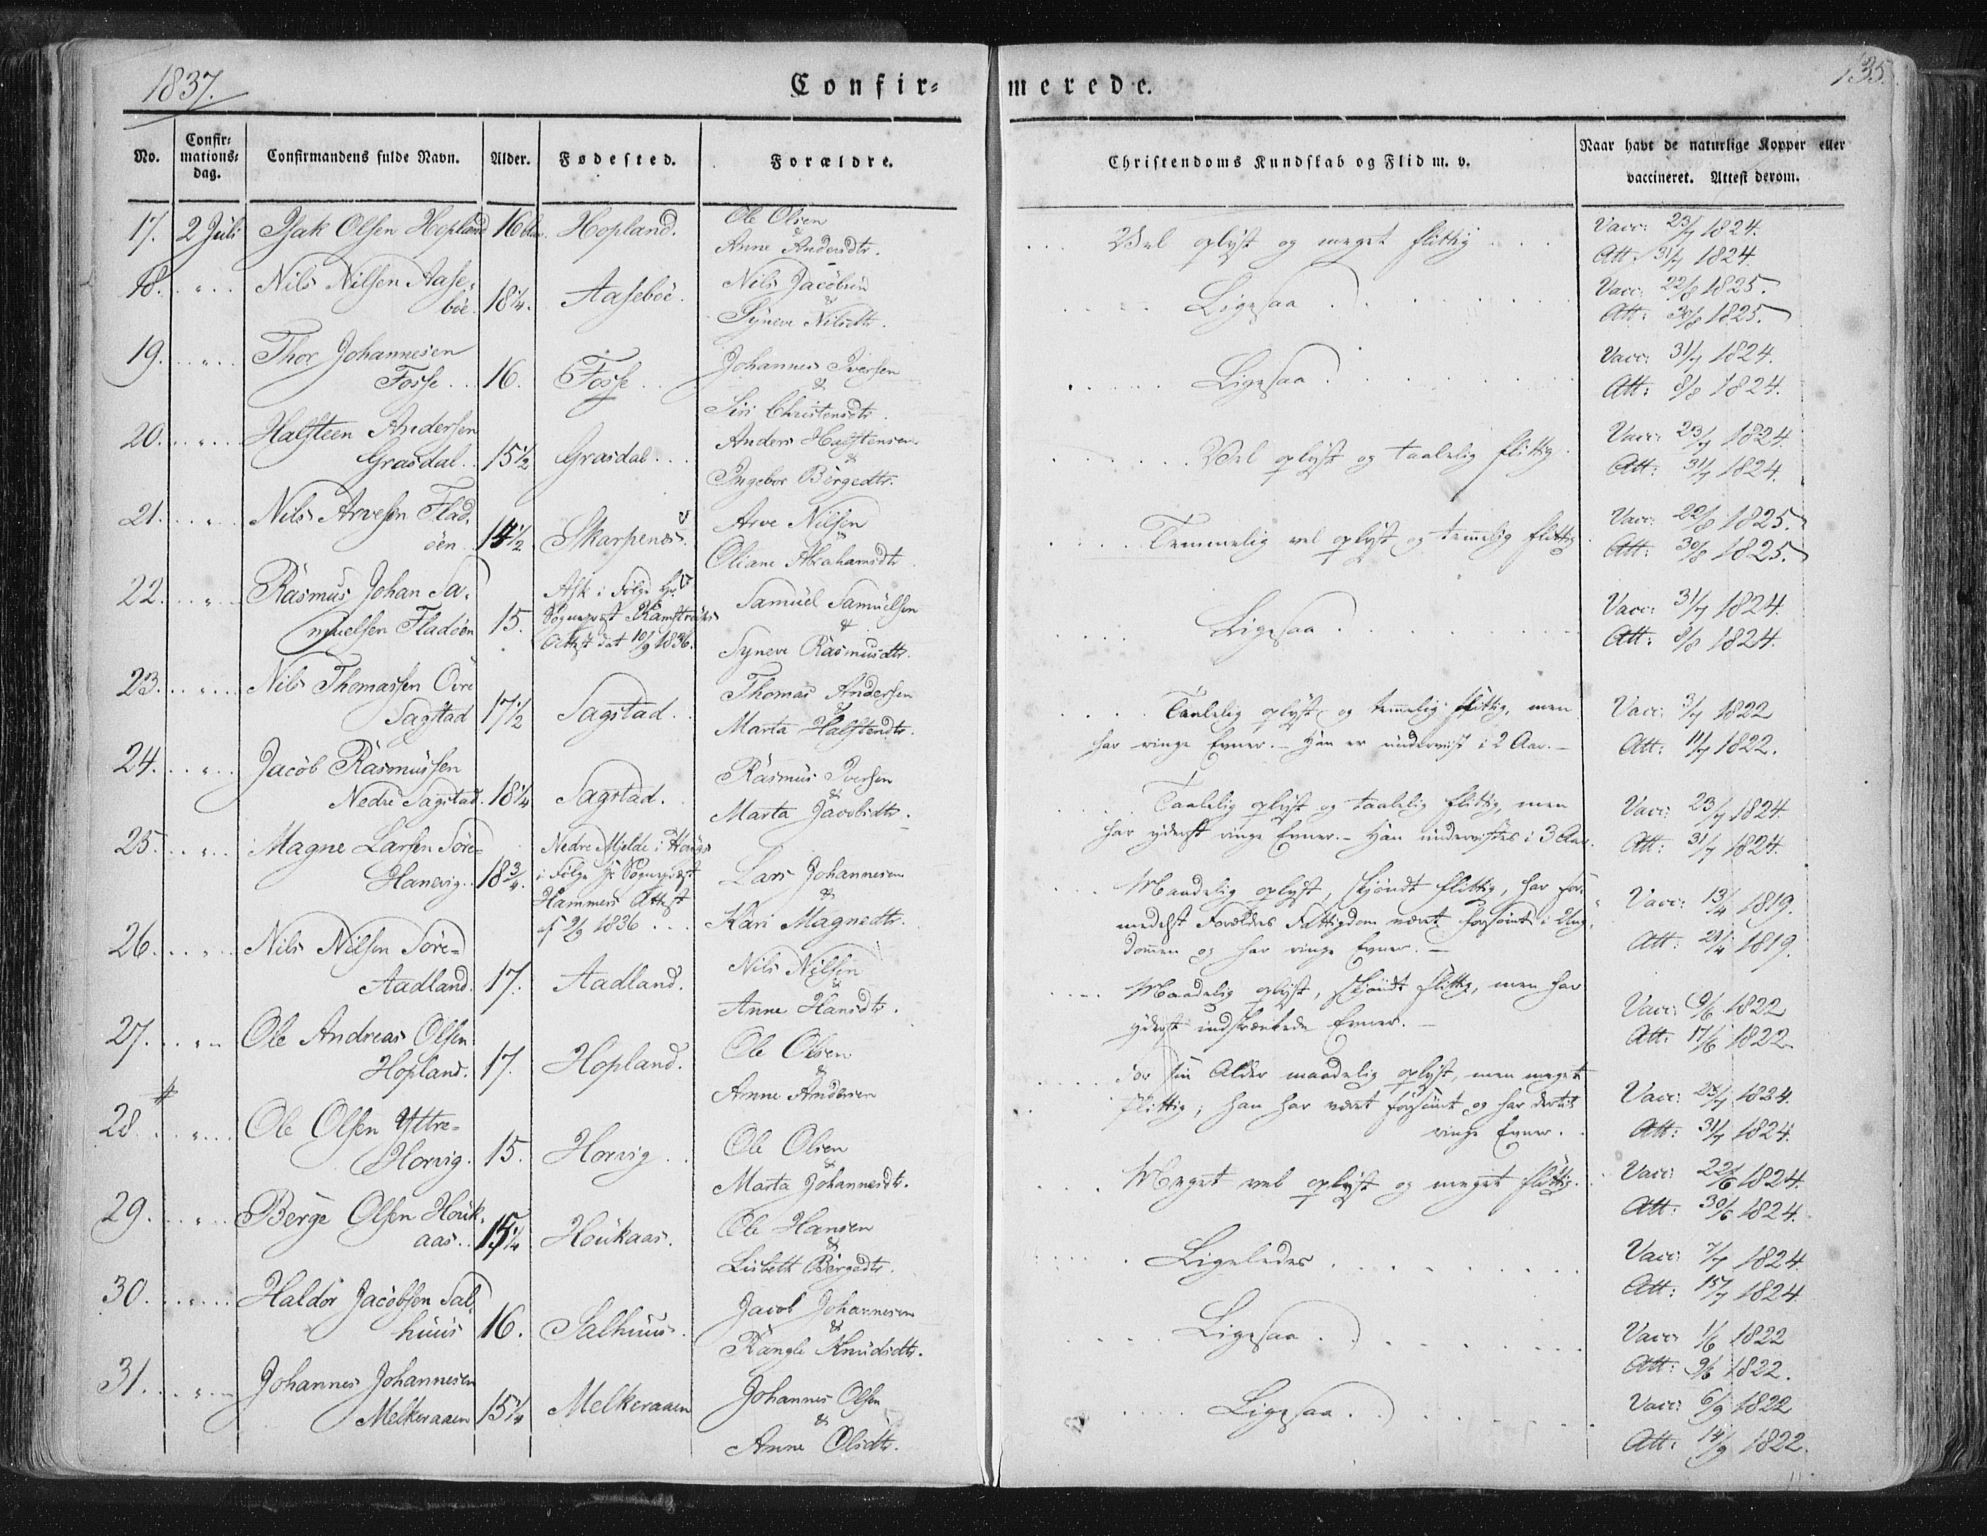 1837.
Confir= merede.
135.
No.
Confir=
mations=
dag.
Confirmandens fulde Navn.
Alder.
Fødested.
Forældre.
Christendoms Kundskab og Flid m. v.
Naar havt de naturlige Kopper eller
vaccineret. Attest derom.
17. 2 Juli Isak Olsen Hopland 16 Hopland. Ole Olsen
&
Anne Andersdtr.
Vel oplyst og meget flittig
Vacc: 23/7 1824.
Att: 31/7 1824.
18. " Nils Nilsen Aase-
böe. 18 1/4. Aaseböe. Nils Jacobsen
&
Syneve Nilsdtr.
Ligesaa
Vacc: 22/8 1825.
Att: 30/8 1825.
19. " Thor Johannesen
Fosse 16. Fosse Johannes Iversen
&
Siri Christensdtr.
Ligesaa
Vacc: 31/7 1824.
Att: 8/8 1824.
20. " Halsteen Andersen
Grasdal 15 1/2 Grasdal Anders Halstensen
&
Ingebor Börgedtr.
Vel oplyst og taalelig flittig.
Vacc: 23/7 1824.
Att: 31/7 1824.
21. " Nils Arvesen Flad-
öen 14 1/2 Skarpenes. Arve Nilsen
&
Oliane Abrahamsdtr.
Temmelig vel oplyst og temelig flittig
Vacc: 22/8 1825.
Att: 30/8 1825.
22. " Rasmus Johan Sa-
muelsen Fladöen 15. Ask i Følge Hr.
Sogneprest Kamstrups
Attest dat 10/9 1836. Samuel Samuelsen
&
Syneve Rasmusdtr.
Ligesaa
Vacc: 31/7 1824.
Att: 8/8 1824.
23. " Nils Thomassen Övre
Sagstad 17 1/2 Sagstad. Thomas Andersen
&
Marta Halstendtr.
Taalelig oplyst og temelig flittig, men
har ringe Evner. – Han er undervist i 2 Aar. –
Vacc: 3/7 1822
Att: 11/7 1822.
24. " Jacob Rasmussen
Nedre Sagstad. 18 1/4 Sagstad. Rasmus Iversen
&
Marta Jacobsdtr.
Taalelig oplyst og taalelig flittig, men
har yderst ringe Evner. – Han undervistes i 3 Aar.
Vacc: 23/7 1824.
Att: 31/7 1824.
25. " Magne Larsen Söre-
Hanevig. 18 3/4. Nedre Mjelde i Hougs
i Følge Hr Sogneprest
Hammers Attest
f 2/9 1836 Lars Johannesen
&
Kari Magnedtr.
Maadelig oplyst, skjöndt flittig, har for-
medelst Forældres Fattigdom været forsömt i Ung-
dommen og har ringe Evner. –
Vacc: 13/4 1819.
Att: 21/4 1819.
26. " Nils Nilsen Söre-
Aadland. 17. Aadland. Nils Nilsen
&
Anne Hansdtr.
Maadelig oplyst, skjöndt flittig, men har
yderst indskrænkede Evner. –
Vacc: 9/6 1822
Att: 17/6 1822
27. " Ole Andreas Olsen
Hopland. 17. Hopland. Ole Olsen
&
Anne Andersen
For sin Alder maadelig oplyst, men meget
flittig; han har været forsömt og har dertil
ringe Evner.
Vacc: 23/7 1824.
Att: 31/7 1824.
28. " Ole Olsen Yttre-
Horvig. 15. Horvig Ole Olsen
&
Marta Johannesdtr.
Meget vel oplyst og meget flittig.
Vacc: 22/6 1824.
Att: 30/6 1824.
29. " Berge Olsen Houk-
aas. 15 1/4 Houkaas. Ole Hansen
&
Lisbett Börgedtr.
Ligeledes
Vacc: 7/7 1824.
Att: 15/7 1824.
30. " Haldor Jacobsen Sal-
huus 16. Salhuus. Jacob Johannesen
&
Rangle Knudsdtr.
Ligesaa
Vacc: 1/6 1822
Att: 9/6 1822.
31. " Johannes Johannesen
Melkeraaen 15 1/4 Melkeraaen Johannes Olsen
&
Anne Olsdtr.
Ligesaa
Vacc: 6/9 1822
Att: 14/9 1822.